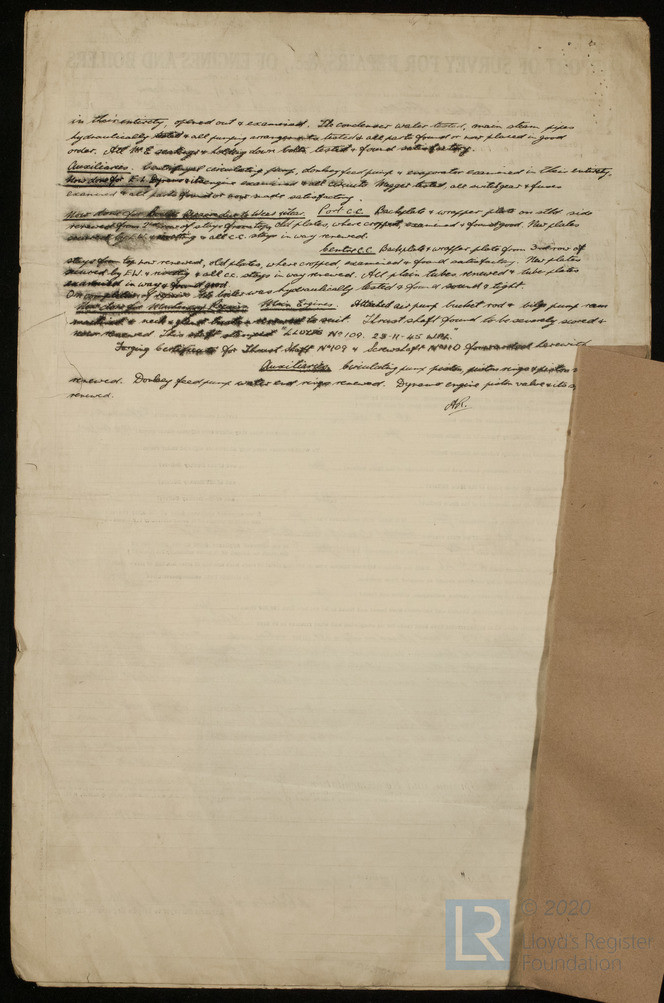 in their entirety, opened out & examined. The condenser water tested, main steam pipes
hydraulically tested & all pumping arrangements tested & all parts found or now placed in good
order. All M.E. seatings & holding down bolts tested & found satisfactory.
Auxiliaries. Centrifugal circulating pump, donkey feed pump & evaporator examined in their entirety.
Now done for E.L. Dynamo & its engine examined & all circuits Megger tested, all switchgear & fuses
examined & all parts found or now made satisfactory.
Now done for Boiler Repairs due to Wear & tear. Port C.C. Backplate & wrapper plate on stbd side
renewed from 2nd row of stays from top, old plates, where cropped, examined & found good. New plates
secured by E.W. & riveting & all c.c. stays in way renewed.
Centre C.C. Backplate & wrapper plate from 3rd row of
stays from top now renewed, old plates, where cropped, examined & found satisfactory. New plates
secured by E.W. & riveting & all c.c. stays in way renewed. All plain tubes renewed & tube plates
examined in way & found good.
On completion of repairs the boiler was hydraulically tested & found sound & tight.
Now done for Machinery Repairs Main Engines. Attached air pump bucket rod & bilge pump ram
machined & neck & gland bushes renewed to suit. Thrust shaft found to be severely scored &
now renewed This shaft stamped "LLOYDS No 109. 23-11-45
Forging Certificates for Thrust Shaft No 109 & Screwshaft forwarded herewith
Auxiliaries Circulating pump piston, piston rings & piston
renewed. Donkey feed pump water end rings renewed. Dynamo engine piston valve & its
renewed.
AR.
OF SURVEY FOR REPAIRS, &c., OF ENGINES AND BOILERS
LR
© 2020
Lloyd's Register
Foundation